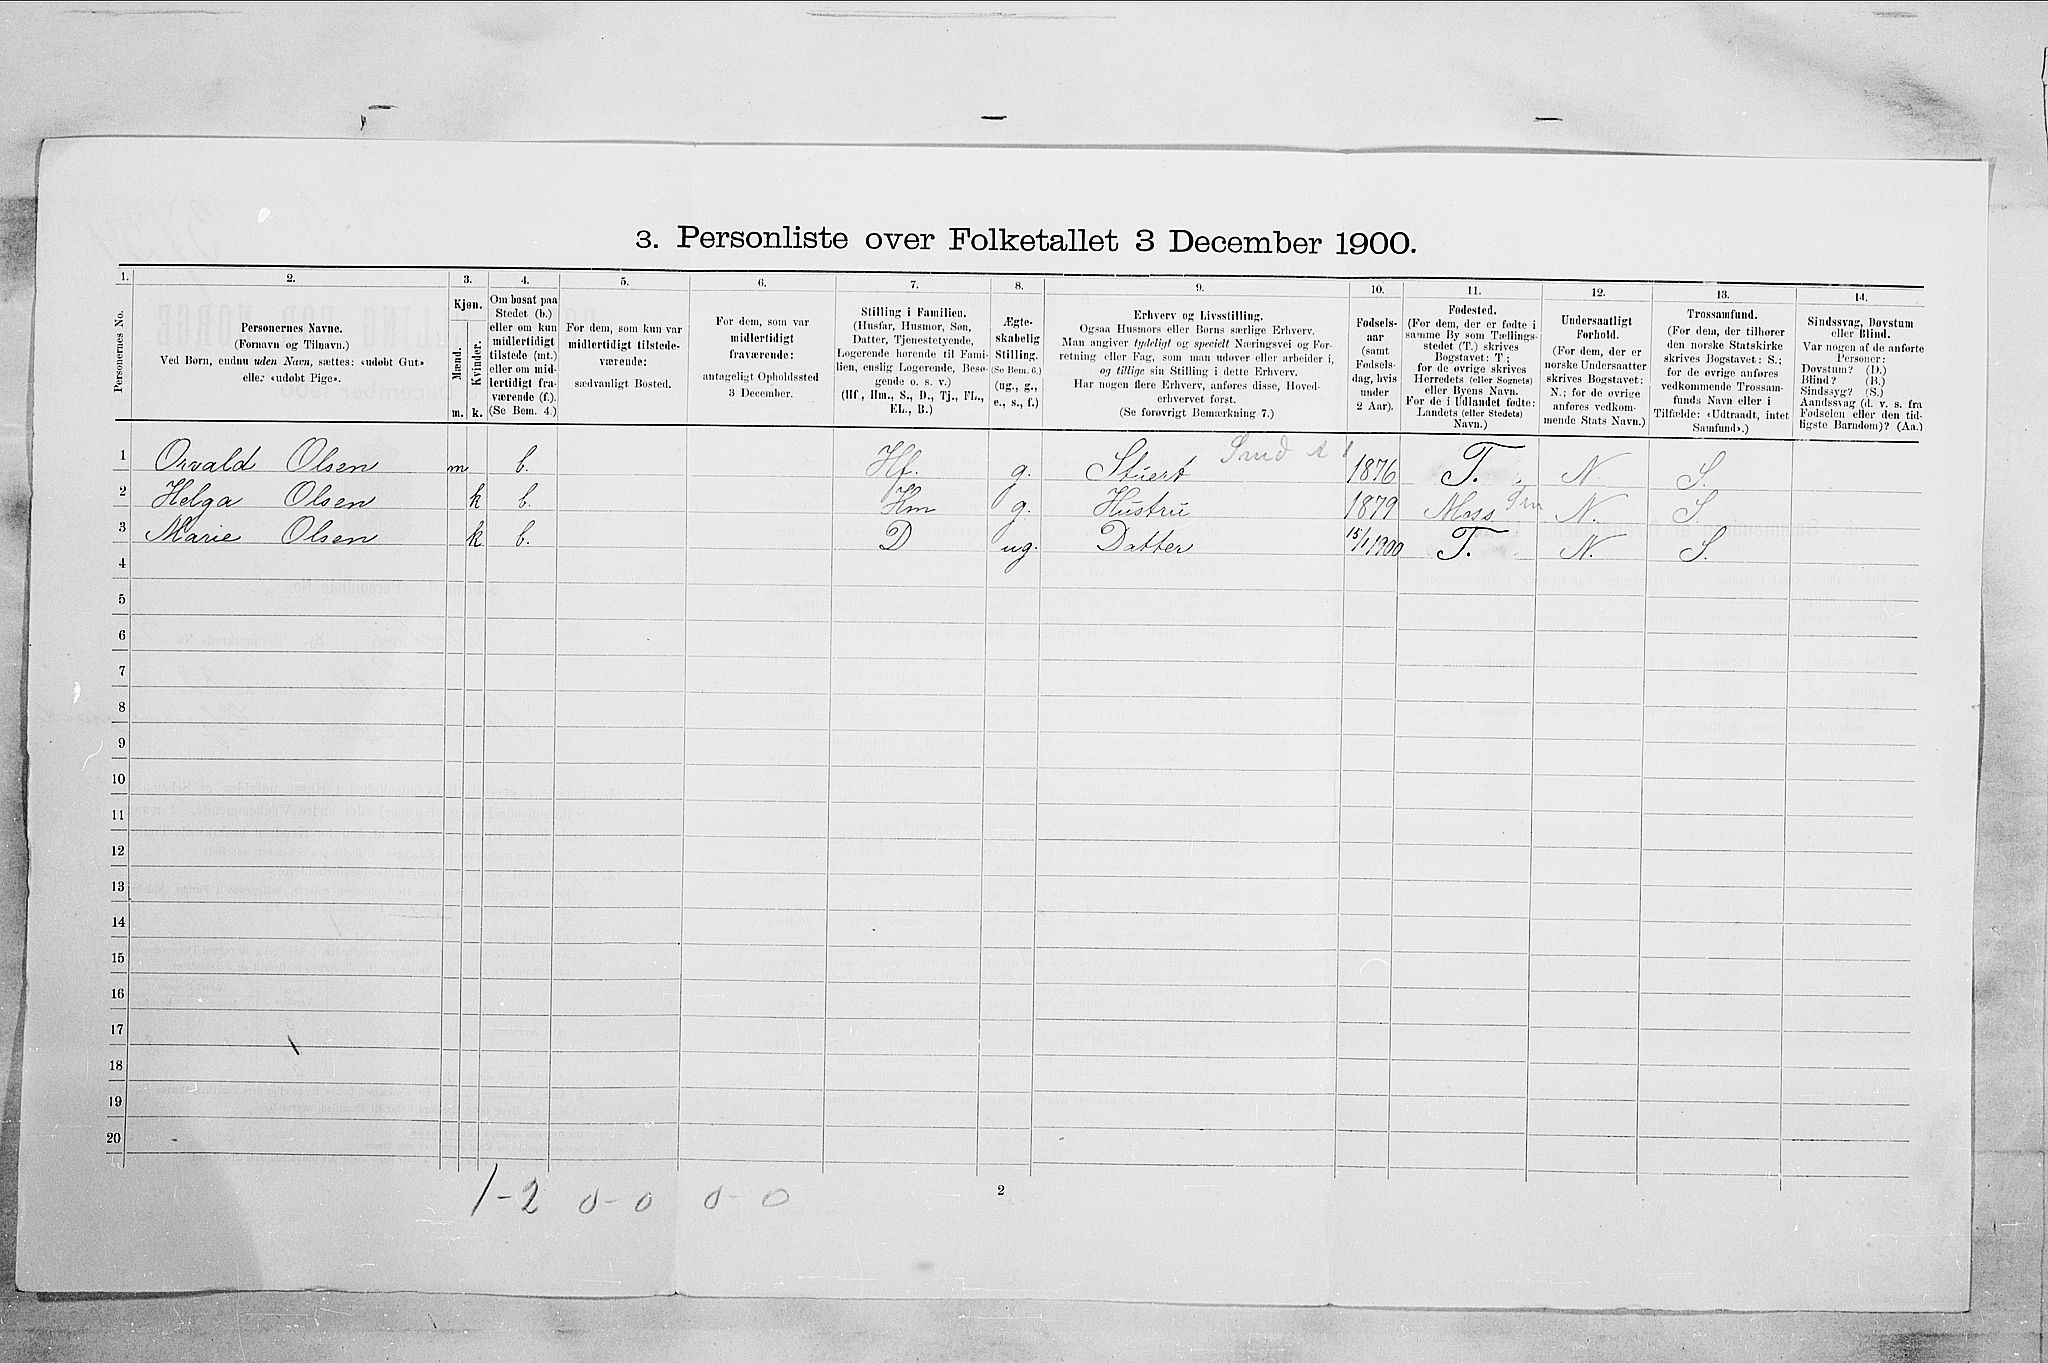 3. Personliste over Folketallet 3 December 1900.
1. 2. 3. 4. 5. 6. 7. 8. 9. 10. 11. 12. 13. 14.
Personernes No.
Personernes Navne.
(Fornavn og Tilnavn.)
Ved Børn, endnu uden Navn, sættes: «udøbt Gut»
eller «udøbt Pige».
Kjøn.
Mænd.
Kvinder.
m. k.
Om bosat paa
Stedet (b.)
eller om kun
midlertidigt
tilstede (mt.)
eller om mid-
lertidigt fra-
værende (f.).
(Se Bem. 4.)
For dem, som kun var
midlertidigt tilstede-
værende:
sædvanligt Bosted.
For dem, som var
midlertidigt
fraværende:
antageligt Opholdssted
3 December.
Stilling i Familien.
(Husfar, Husmor, Søn,
Datter, Tjenestetyende,
Logerende hørende til Fami-
lien, enslig Logerende, Besø-
gende o. s. v.)
(Hf., Hm., S., D., Tj., FL.,
EL., B.)
Ægte-
skabelig
Stilling.
(Se Bem. 6.)
(ug., g.,
e., s., f.)
Erhverv og Livsstilling.
Ogsaa Husmors eller Børns særlige Erhverv.
Man angiver tydeligt og specielt Næringsvei og For-
retning eller Fag, som man udøver eller arbeider i,
og tillige sin Stilling i dette Erhverv.
Har nogen flere Erhverv, anføres disse, Hoved-
erhvervet først.
(Se forøvrigt Bemærkning 7.)
Fødsels-
aar
(samt
Fødsels-
dag, hvis
under
2 Aar).
Fødested.
(For dem, der er fødte i
samme By som Tællings-
stedet (T.) skrives
Bogstavet: T.;
for de øvrige skrives
Herredets (eller Sognets)
eller Byens Navn.
For de i Udlandet fødte:
Landets (eller Stedets)
Navn.)
Undersaatligt
Forhold.
(For dem, der er
norske Undersaatter
skrives Bogstavet:
N.; for de øvrige
anføres vedkom-
mende Stats Navn.)
Trossamfund.
(For dem, der tilhører
den norske Statskirke
skrives Bogstavet: S.;
for de øvrige anføres
vedkommende Trossam-
funds Navn eller i
Tilfælde: «Udtraadt, intet
Samfund».)
Sindssvag, Døvstum
eller Blind.
Var nogen af de anførte
Personer:
Døvstum? (D.)
Blind? (B.)
Sindssyg? (S.)
Aandssvag (d. v. s. fra
Fødselen eller den tid-
ligste Barndom)? (Aa.)
1 Osvald Olsen m b. Hf. g. Stuert 1876 T. N. S.
2 Helga Olsen k b. Hm g. Hustru 1879 Moss N. S.
3 Marie Olsen k b. D ug. Datter 15/1 1900 T. N. S.
4
5
6
7
8
9
10
11
12
13
14
15
16
17
18
19
20
1-2 0-0 0-0
2